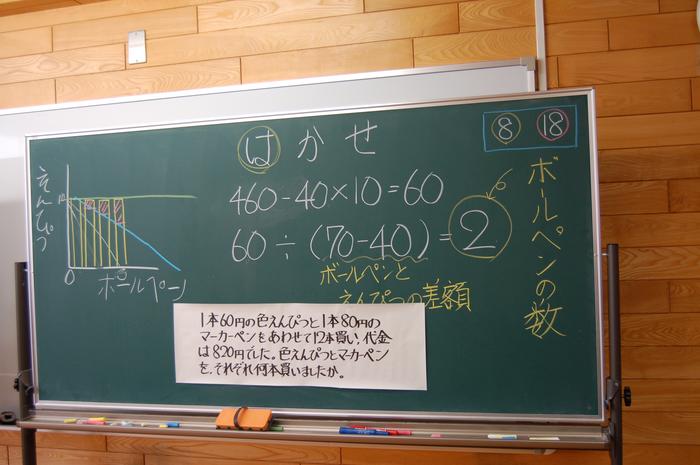 はかせ
⑧ ⑱
460-40×10=60
60÷(70-40)=2
ボールペンと
えんぴつの差額
ボールペンの数
えんぴつ
0
ボールペン
1本60円の色えんぴつと1本80円の
マーカーペンをあわせて12本買い、代金
は820円でした。色えんぴつとマーカーペン
を、それぞれ何本買いましたか。